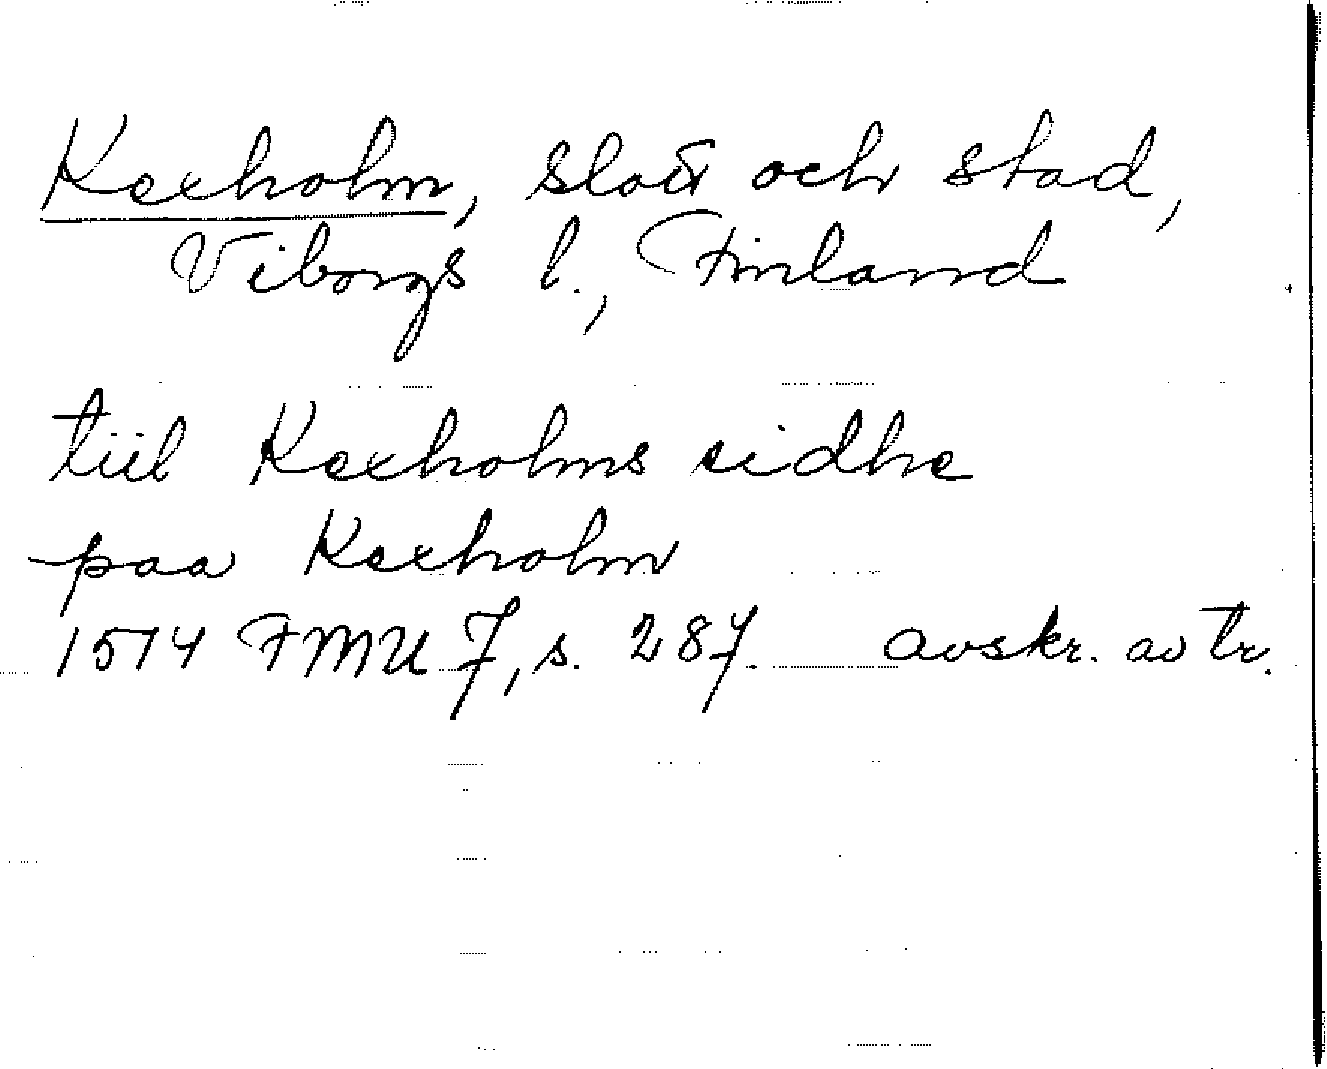 Kexholm, slott och stad,
Viborgs l., Finland
tiil Kexholms sidhe
paa Kexholm
1514 FMU 7, s. 287. avskr. av tr.